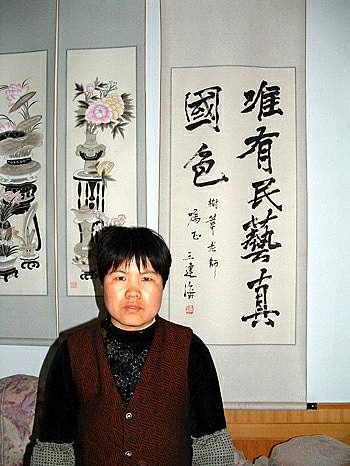 唯有民藝真
國色
樹老師
囑正
王建